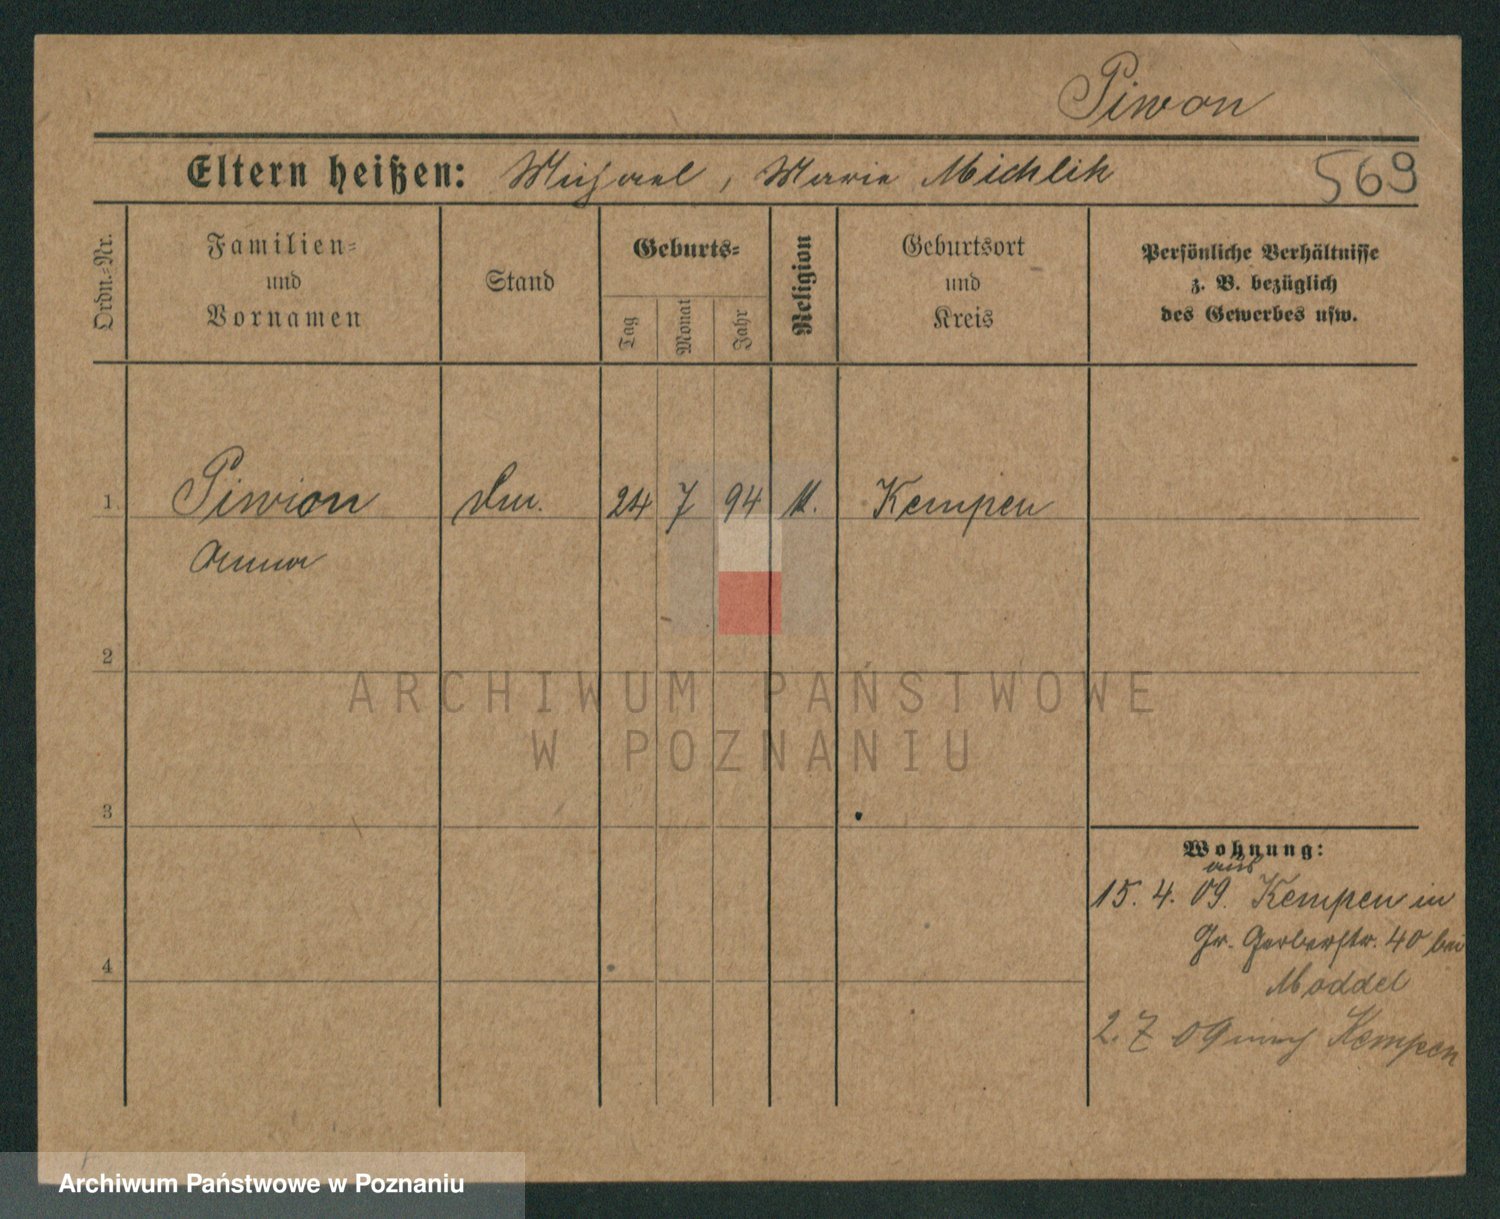 Piwon
Eltern heißen: Michael, Marie Michlik 569
Ordn.=Nr.
Familien=
und
Vornamen
Stand
Geburts=
Tag
Monat
Jahr
Religion
Geburtsort
und
Kreis
Persönliche Verhältnisse
z. B. bezüglich
des Gewerbes usw.
1 Piwion 24 7 94 k. Kempen
Anna
2
ARCHIWUM PAŃSTWOWE
W POZNANIU
3
Wohnung:
aus
15. 4. 09. Kempen in
Gr. Gerberstr. 40 bei
Moddel
4
2. 7 09 nach Kempen
Archiwum Państwowe w Poznaniu